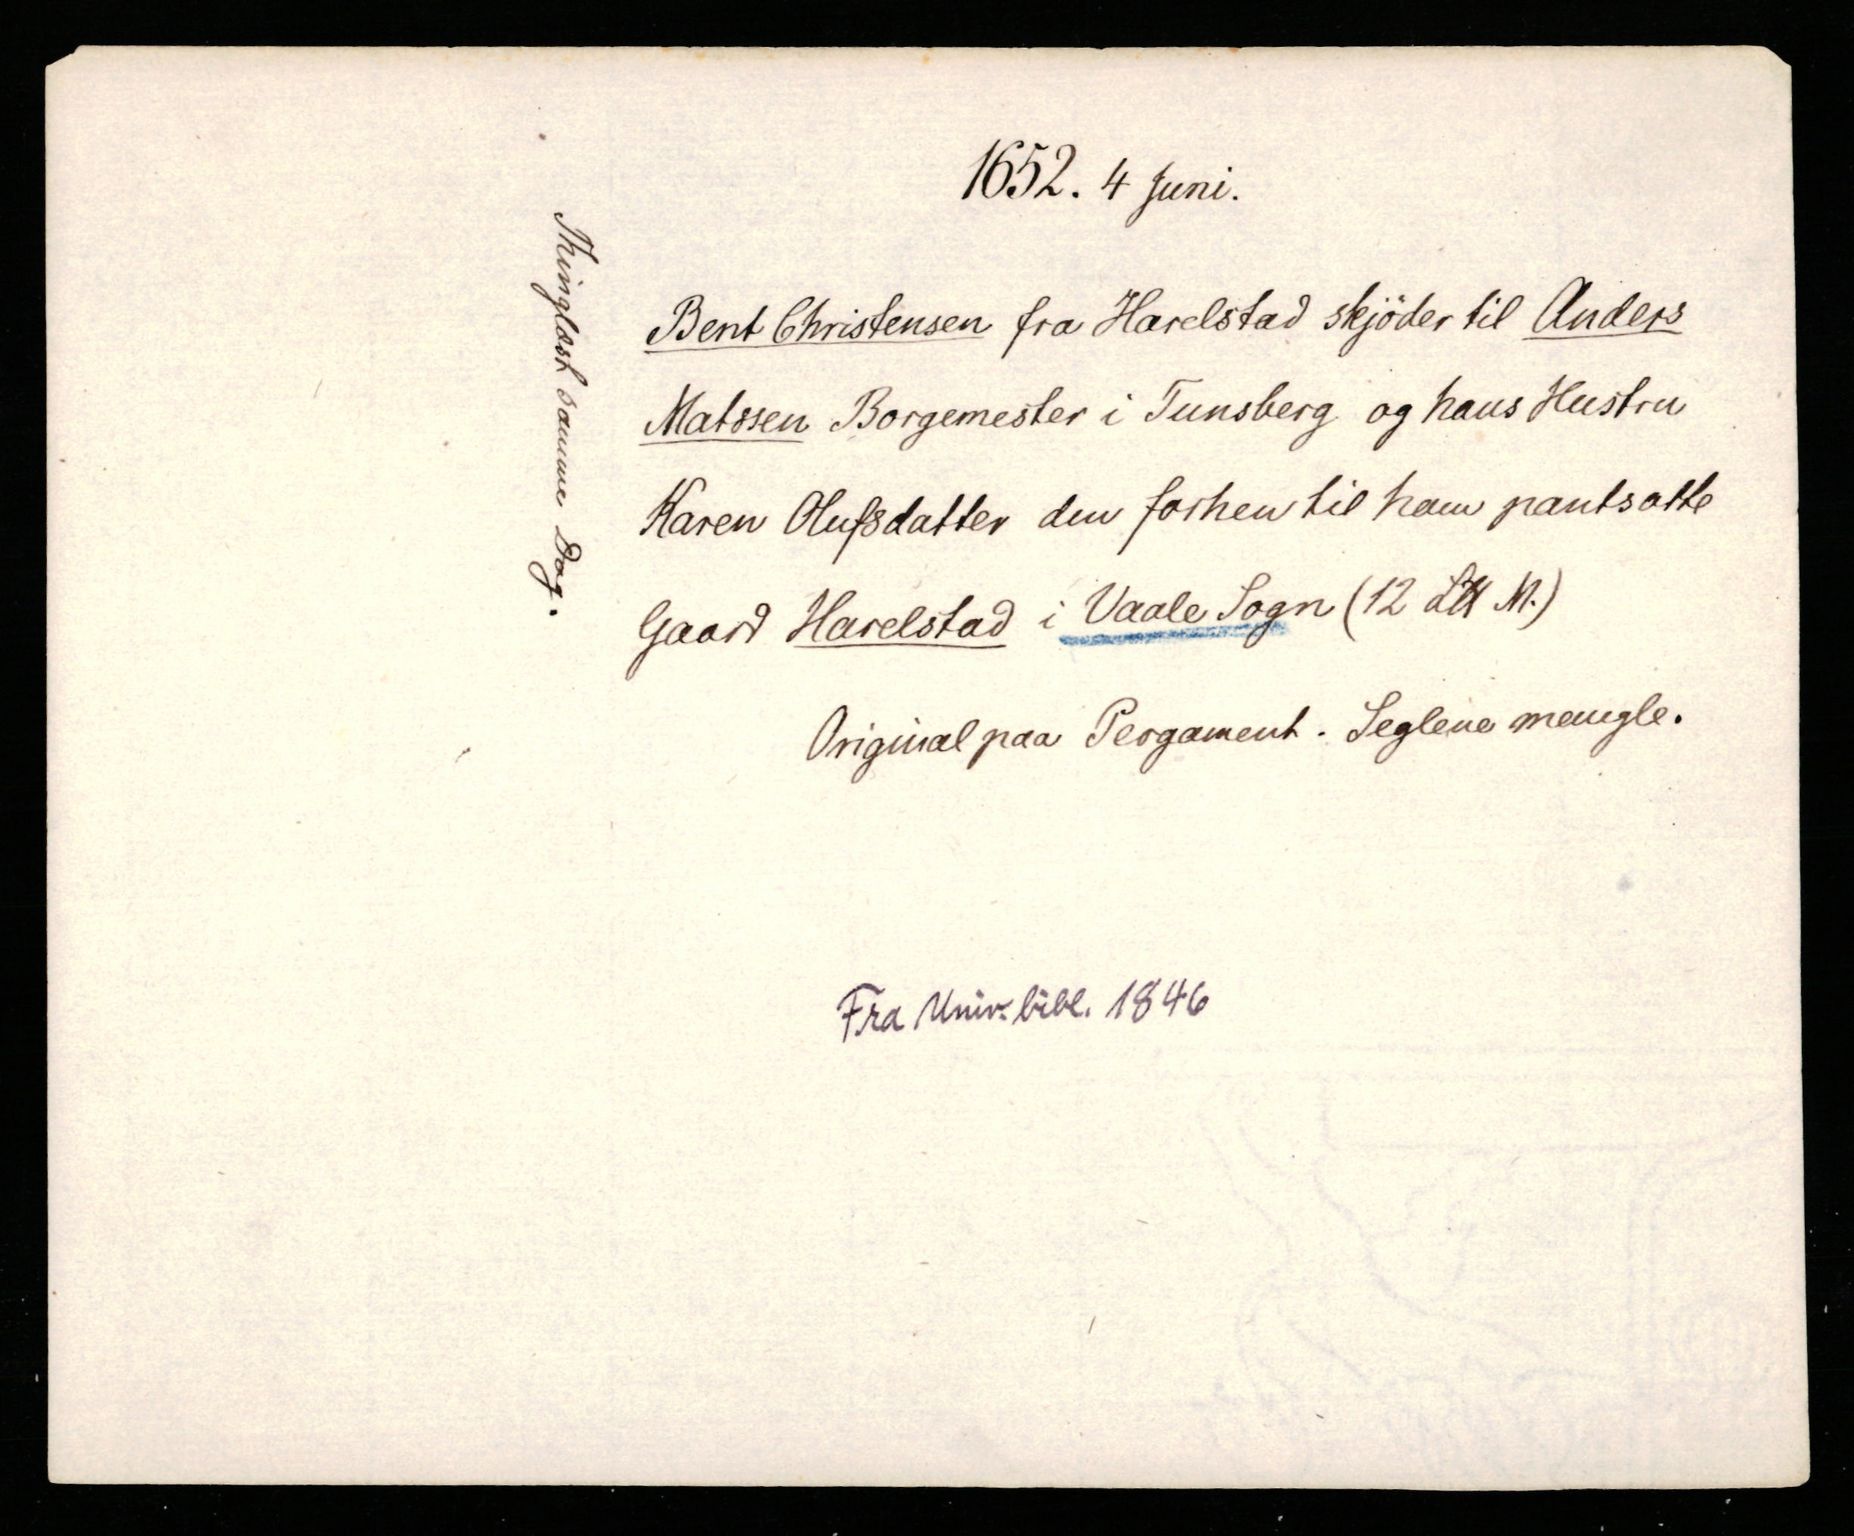 1652. 4 Juni.
Bent Christensen fra Harelstad skjöder til Anders
Matssen Borgemester i Tunsberg og hans Hustru
Karen Olufsdatter den forhen til ham pantsatte
Gaard Harelstad i Vaale Sogn (12 L℔ M.)
Original paa Pergament. Seglene mangle.
Thinglæst samme Dag.
Fra Univ. bibl. 1846